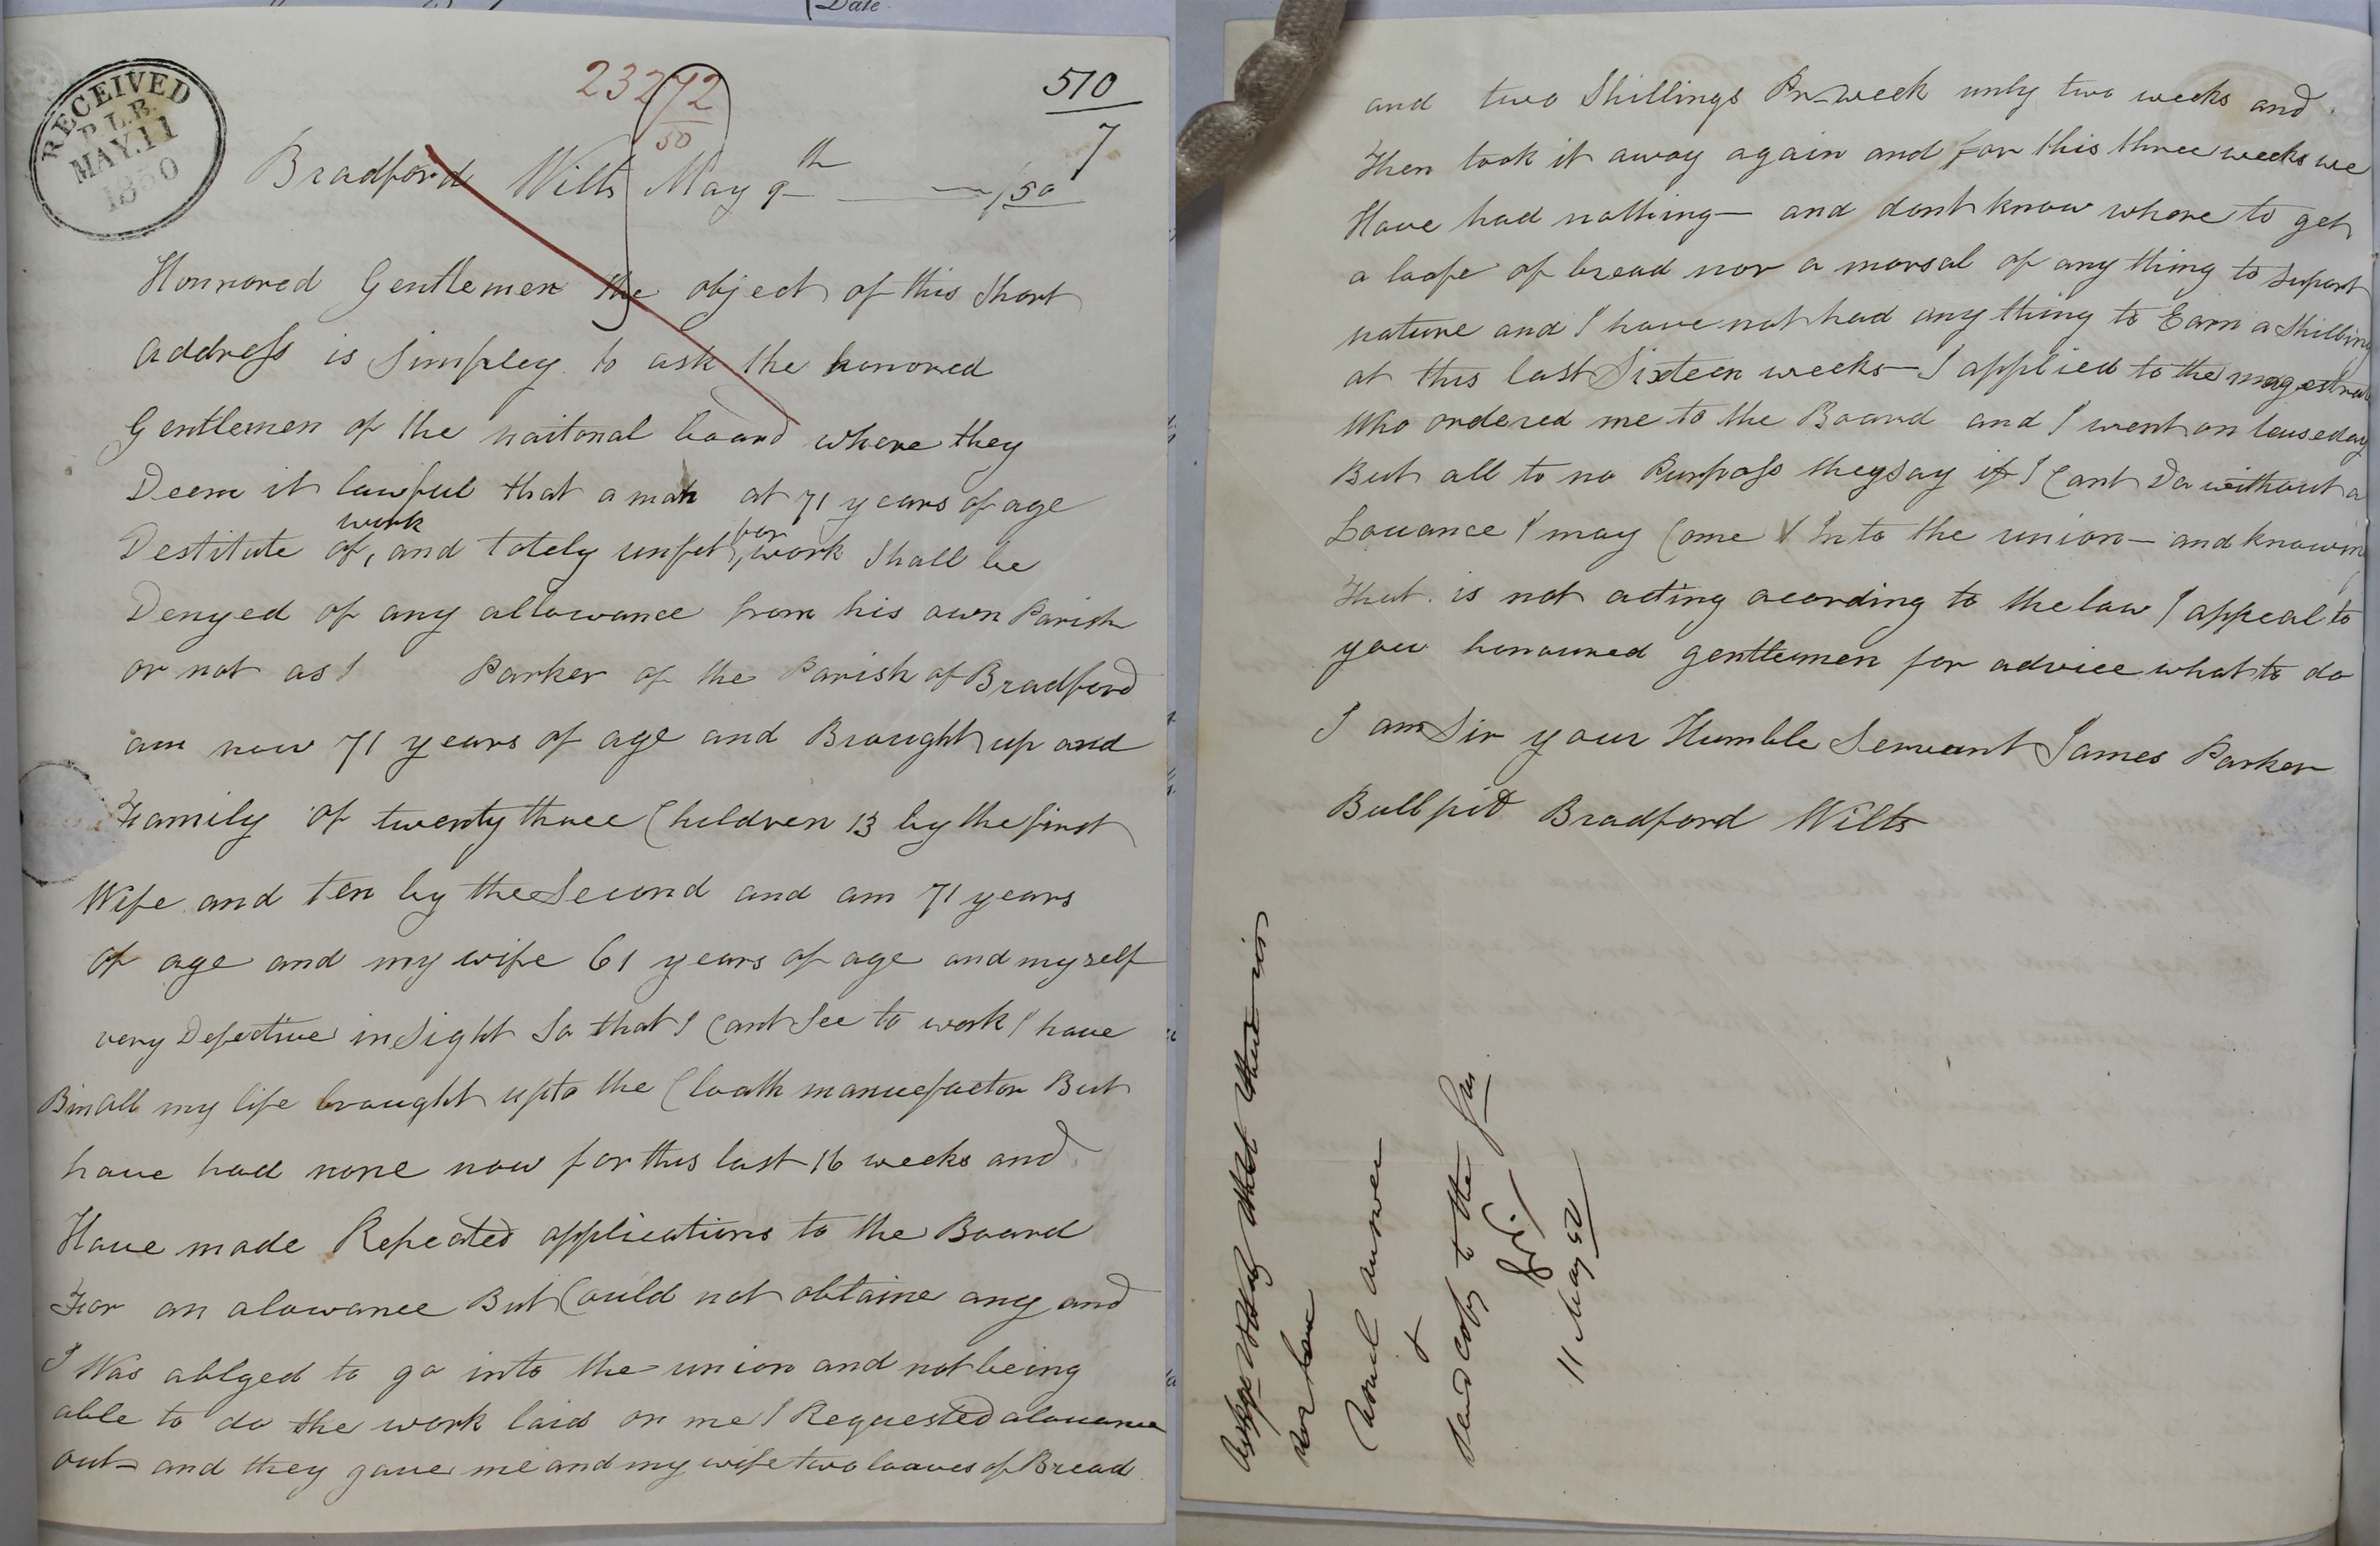 Date
RECEIVED
P.L.B.
MAY.11
1850
23272
50
510
7
Bradford Wilts May 9th /50
Honnored Gentlemen the object of this Short
address is Simpley to ask the honored
Gentlemen of the naitonal board where they
Deem it lawful that a man at 71 years of age
Destitute of, work and totely unfet, for work Shall be
Denyed of any allowance from his own Parish
or not as I Parker of the Parish of Bradford
am now 71 years of age and Brought up and
Family of twenty three Children 13 by the first
Wife and ten by the Second and am 71 years
of age and my wife 61 years of age and my self
very Defective in Sight So that I Cant See to work I have
Bin all my life brought up to the Cloath manuefactor But
have had none now for this last 16 weeks and
Have made Repeated applications to the Board
For an alowance But Could not obtaine any and
I Was oblged to go into the union and not being
able to do the work laid on me I Requested alouance
out and they gave me and my wife two loaves of Bread
and two Shillings Pr week only two weeks and
Then took it away again and for this three weeks we
Have had nothing and dont know where to get
a loafe of bread nor a morsal of any thing to Suport
nature and I have not had any thing to Earn a Shilling
at this last Sixteen weeks I applied to the magestrate
Who ordered me to the Board and I went on teuseday
But all to no Purposs they say if I Cant Do without a
Louance I may Come Into the union and knowin
that is not acting acording to the law I appeal to
you honoured gentlemen for advice what to do
I am Sir your Humble Servant James Parker
Bullpit Bradford Wilts
Usual answer
&
Send copy to the Gns
11 May 50